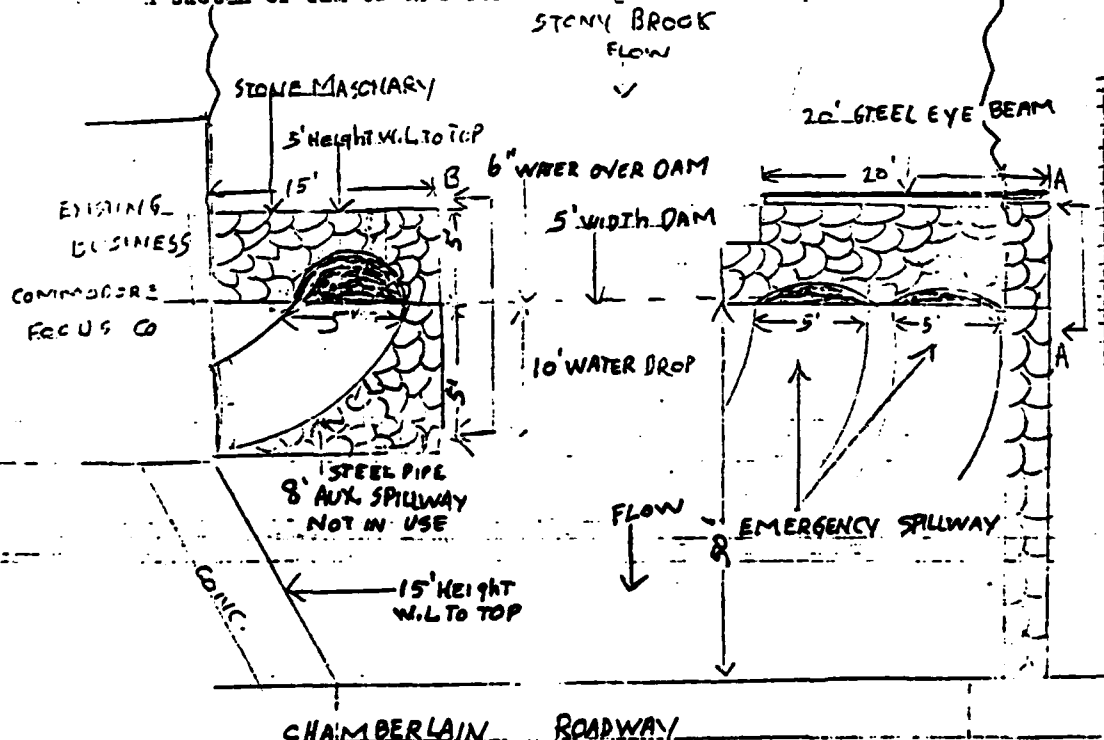 STONY BROOK
FLOW
STONE MASONARY
20' STEEL EYE BEAM
5' Height W.L TO TOP
6" WATER OVER DAM
15'
B
20'
A
EXISTING
BUSINESS
5'
5' WIDTH DAM
COMMODORE
FOCUS CO
5'
5'
A
10' WATER DROP
5'
STEEL PIPE
8' AUX. SPILLWAY
NOT IN USE
FLOW
EMERGENCY SPILLWAY
CONC.
15' HEIGHT
W.L TO TOP
CHAMBERLAIN ROADWAY